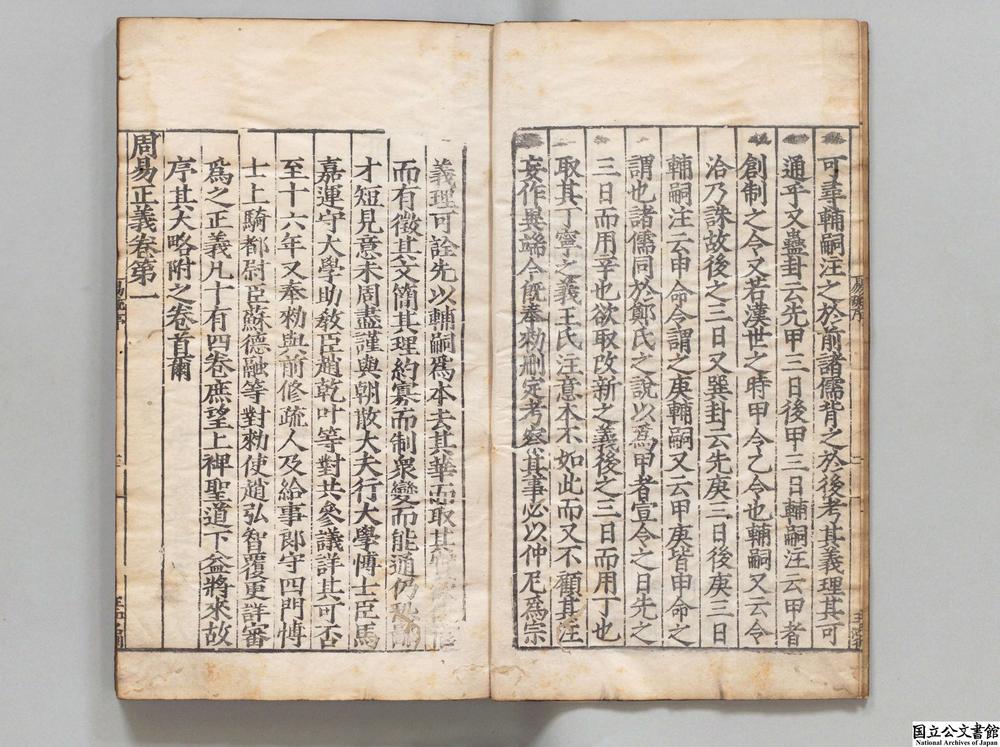 可尋輔嗣注之於前諸儒背之於後考其義理其可
通乎又蠱卦云先甲三日後甲三日輔嗣注云甲者
創制之令又若漢世之時甲令乙令也輔嗣又云令
洽乃誅故後之三日又巽卦云先庚三日後庚三日
輔嗣注云申命令謂之庚輔嗣又云甲庚皆申命之
謂也諸儒同於鄭氏之說以爲甲者宣令之日先之
三日而用辛也欲取改新之義後之三日而用丁也
取其丁寧之義王氏注意本不如此而又不顧其注
妄作異端今旣奉勑刪定考察其事必以仲尼爲宗
義理可詮先以輔嗣爲本去其華而取其
而有徵其文簡其理約寡而制衆變而能通仍
才短見意未周盡謹與朝散大夫行大學博士臣馬
嘉運守大學助敎臣趙乾叶等對共參議詳其可否
至十六年又奉勑與前修疏人及給事郎守四門博
士上騎都尉臣蘇德融等對勑使趙弘智覆更詳審
爲之正義凡十有四卷庶望上裨聖道下益將來故
序其大略附之卷首爾
周易正義卷第一
国立公文書館
National Archives of Japan